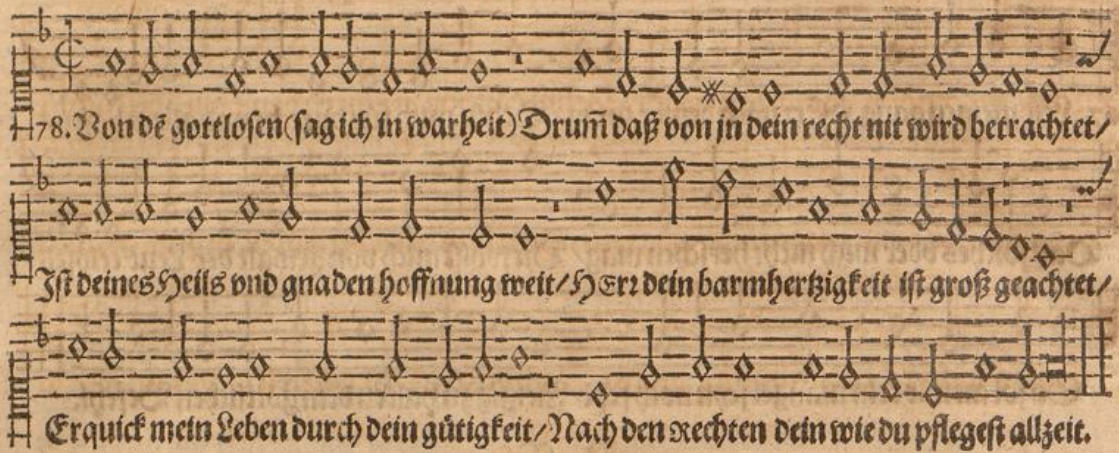 78. Von dē gottlosen (sag ich in warheit) Drum̄ daß von jn dein recht nit wird betrachtet/
Ist deines Heils vnd gnaden hoffnung weit/ HErꝛ dein barmhertzigkeit ist groß geachtet/
Erquick mein Leben durch dein gütigkeit/ Nach den Rechten dein wie du pflegest allzeit.